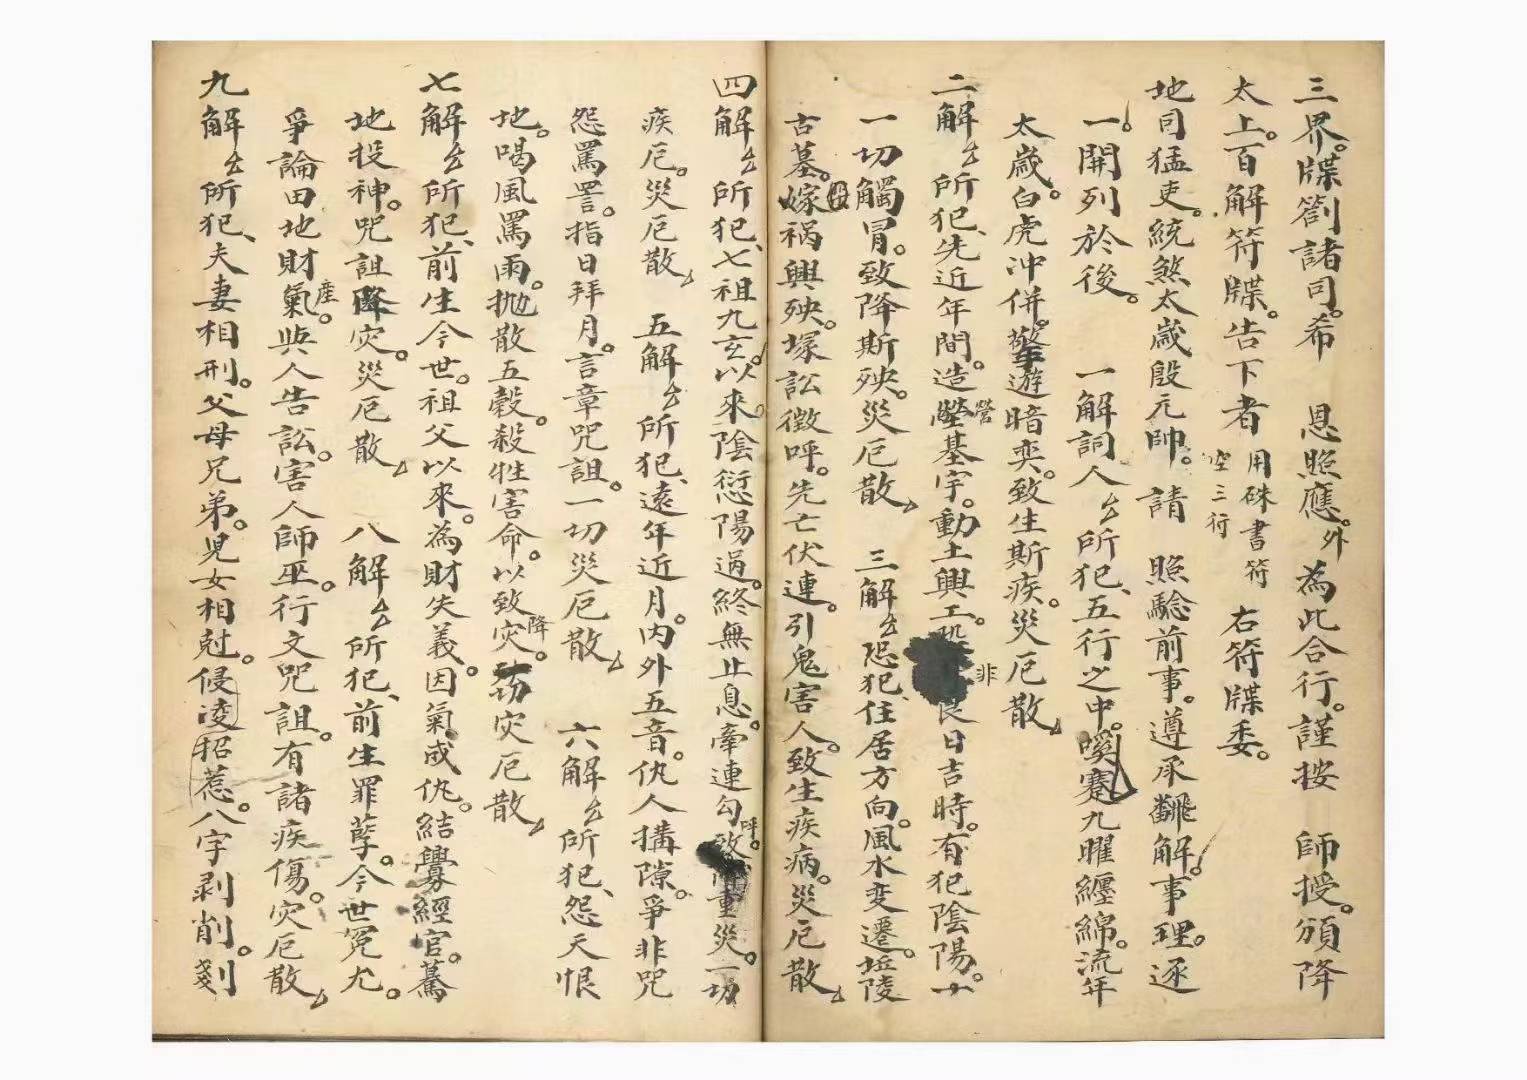 三界。牒劄諸司。希　恩照應。外為此合行。謹按　師授。頒降
太上。百解符牒。告下者　用硃書符　空三行　右符牒委。
地司猛吏。統煞太歲殷元帥。請　照驗前事。遵承翻解。事理。逐
一。開列於後。　一解詞人厶所犯、五行之中。嗘蹇九曜纏綿。流年
太歲。白虎冲併。遊暗奕。致生斯疾。災厄散
二解厶所犯、先近年間。造營基宇。動土興工。非良日吉時。有犯陰陽。一
一切觸冒。致降斯殃。災厄散　三解厶恐犯、住居方向。風水变遷。坵陵
古墓。嫁祸興殃。塚訟徵呼。先亡伏連。引鬼害人。致生疾病。災厄散
四解厶所犯、七祖九玄。以來。陰愆陽過。終無止息。牽連勾呼。致重災。一切
疾厄。災厄散　五解厶所犯、遠年近月。内外五音。仇人搆隙。爭非咒
怨罵詈。指日拜月。言章咒詛。一切災厄散　六解厶所犯、怨天恨
地。喝風罵雨。拋散五穀。殺牲害命。以致降灾。灾厄散
七解厶所犯、前生今世。祖父以來。為財失義。因氣成仇。結釁經官。驀
地投神。咒詛降灾。災厄散　八解厶所犯、前生罪孽。今世冤尤。
爭論田地財產。氣與人告訟。害人師巫。行文咒詛。有諸疾傷。灾厄散
九解厶所犯、夫妻相刑。父母兄弟。兒女相尅。侵凌招惹。八字剥削。剗